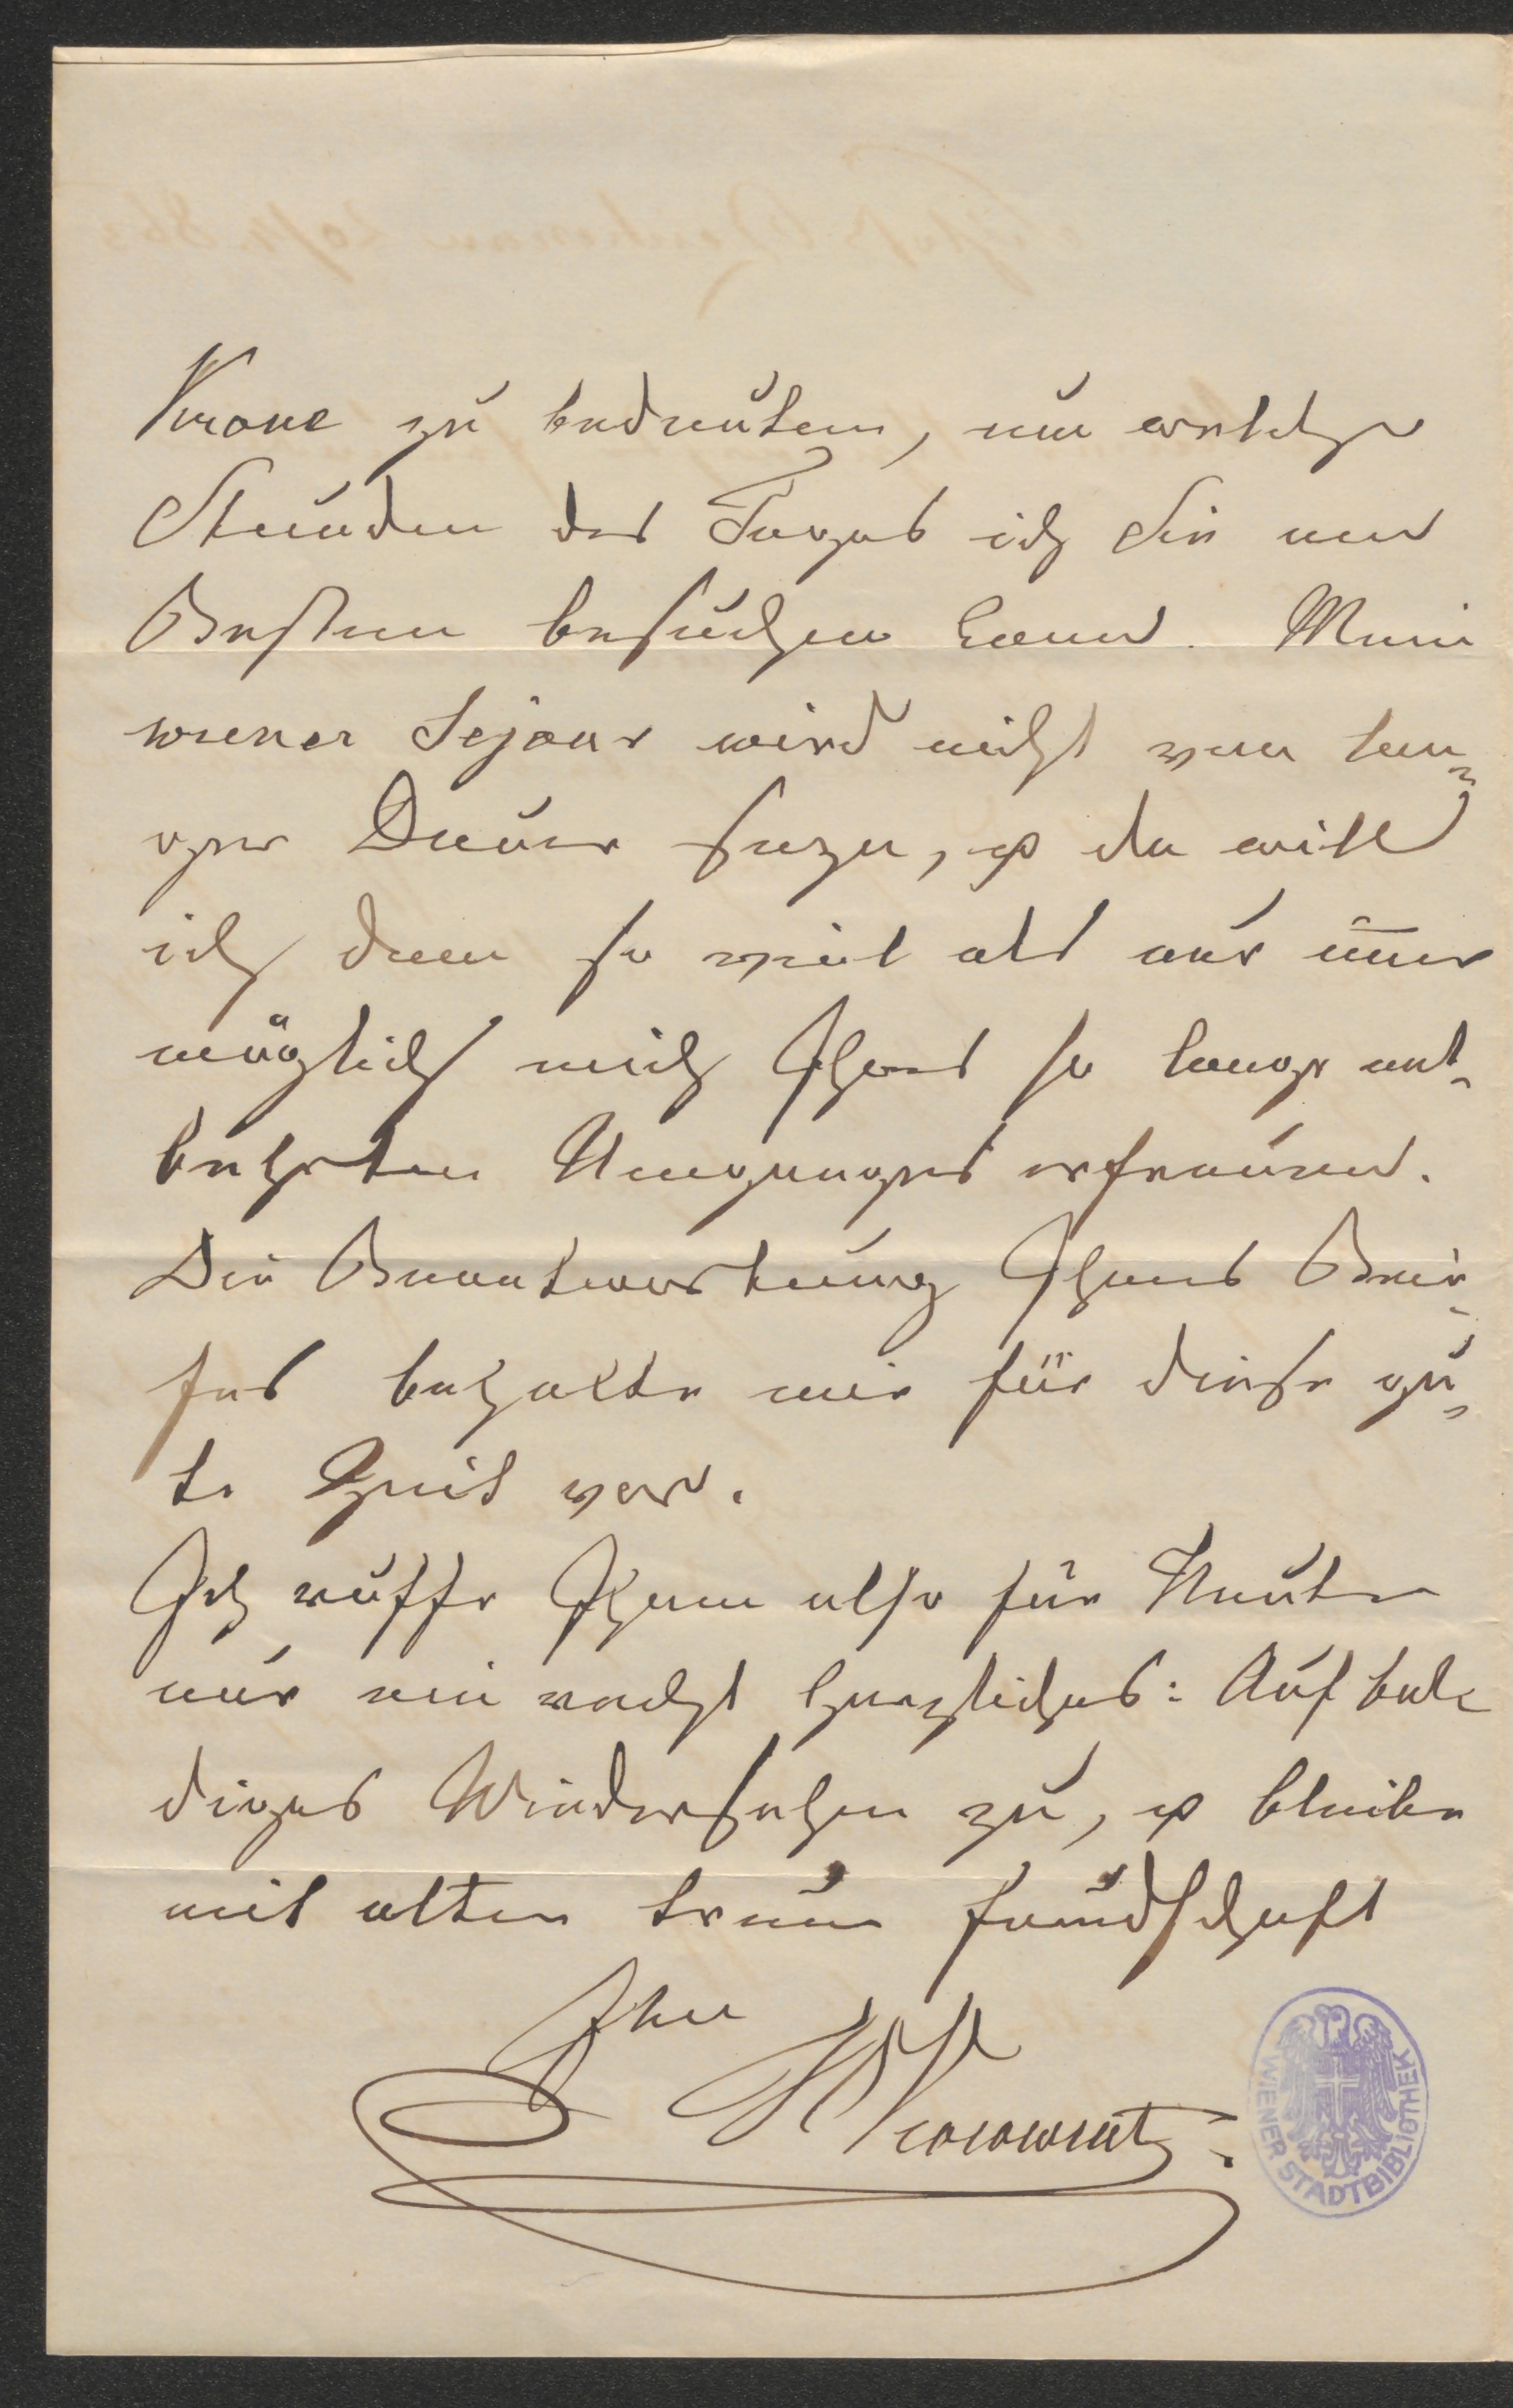 Krone zu bedeuten, um welche
Stunden des Tages ich Sie am
Besten besuchen kann. Mein
wiener Sejour wird nicht von lan¬
ger Dauer sein, u da will
ich denn so viel als nur im̄er
möglich mich Ihres so lange ent¬
behrten Umganges erfreuen.
Die Beantwortung Ihres Brie¬
fes behalte mir für diese gu¬
te Zeit vor.
Ich ruffe Ihnen also für Heute
nur ein recht herzliches: Auf bal¬
diges Wiedersehen zu, u bleibe
mit alter treuer freundschaft
Ihr
WIENER STADTBIBLIOTHEK